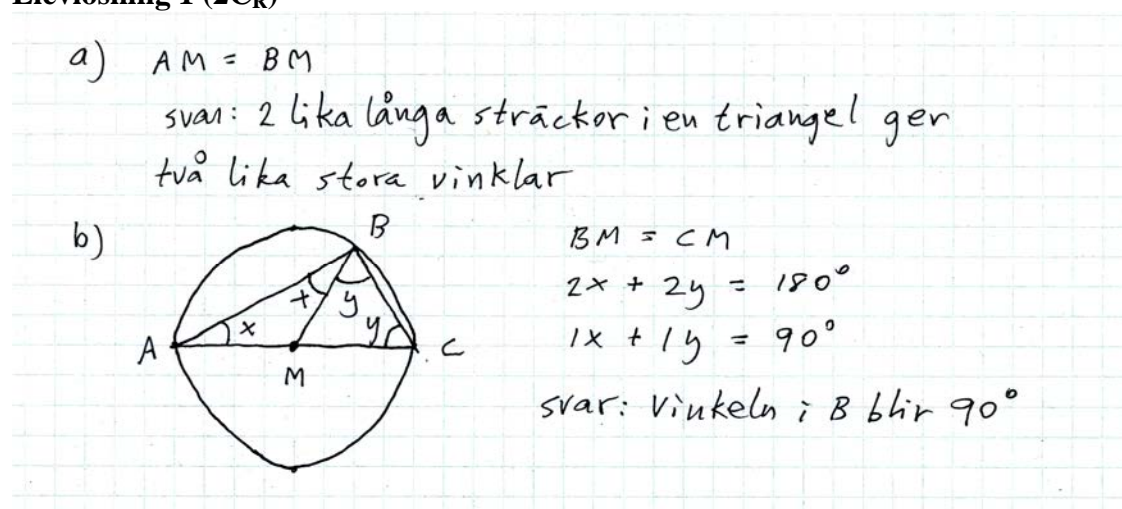 a) AM = BM
svar: 2 lika långa sträckor i en triangel ger
två lika stora vinklar
b)
B
x
y
x
y
A
M
C
BM = CM
2x + 2y = 180°
1x + 1y = 90°
svar: Vinkeln i B blir 90°